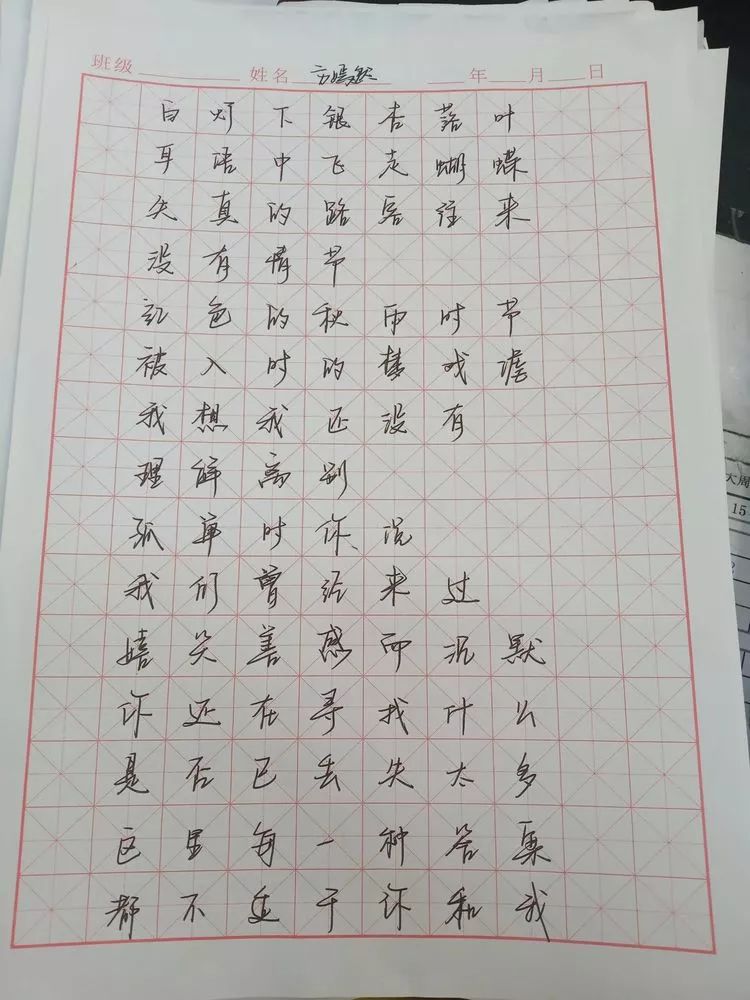 班级 姓名 年 月 日
白灯下银杏落叶
耳语中飞走蝴蝶
失真的路客往来
没有情节
红色的秋雨时节
被入时的梦戏谑
我想我还没有
理解离别
孤单时你说
我们曾经来过
嬉笑善感而沉默
你还在寻找什么
是否已丢失太多
这里每一种答案
都不适于你和我
大周
15